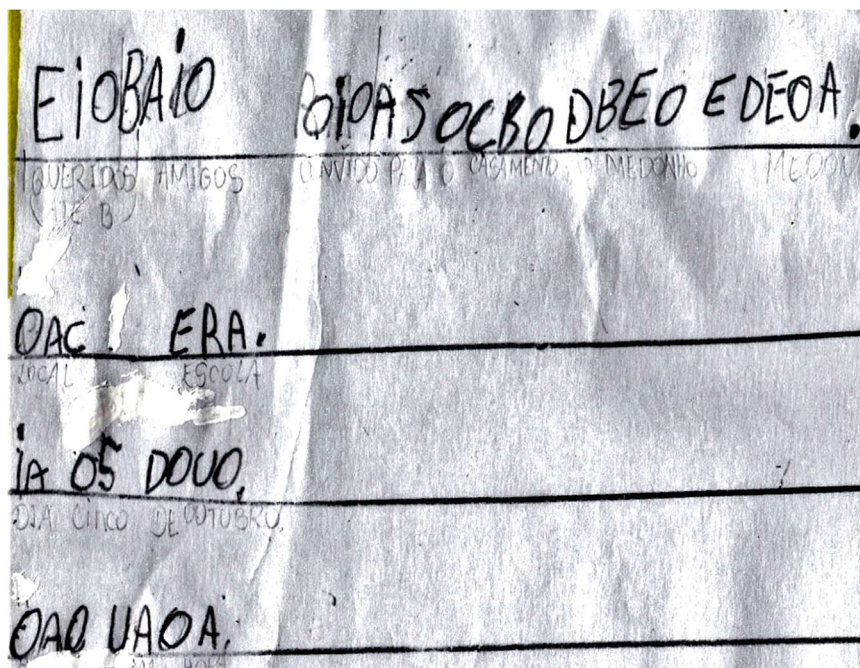 EIOBAIO OIOASOCBODBEO EDEOA.
QUERIDOS AMIGOS CONVIDO PARA O CASAMENTO O MEDONHO
OAC ERA.
LOCAL ESCOLA
IA 05 DOUO.
DIA CINCO DE OUTUBRO.
OAO UAOA.